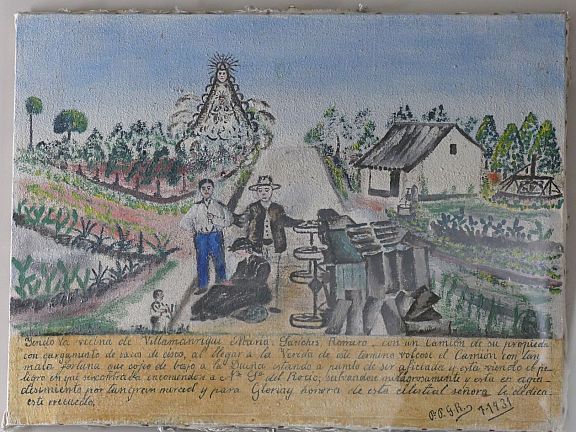 Yendo la vecina de Villamanrique Maria Sanches Romero con un Camion de su propieda
con cargamento de sacos de cisco, al llegar a la Vereda de este termino volcose el Camion con tan
mala fortuna que cojio de bajo a la Dueña estando a punto de ser asficiada y esta viendo el pe
ligro en que se encontraba encomendose a Nª Sª del Rocio, salvandose milagrosamente y esta en agra
desimiento por tan gran merced y para Gloria y honora de esta celestial señora le dedica
este recuerdo.
7-1931